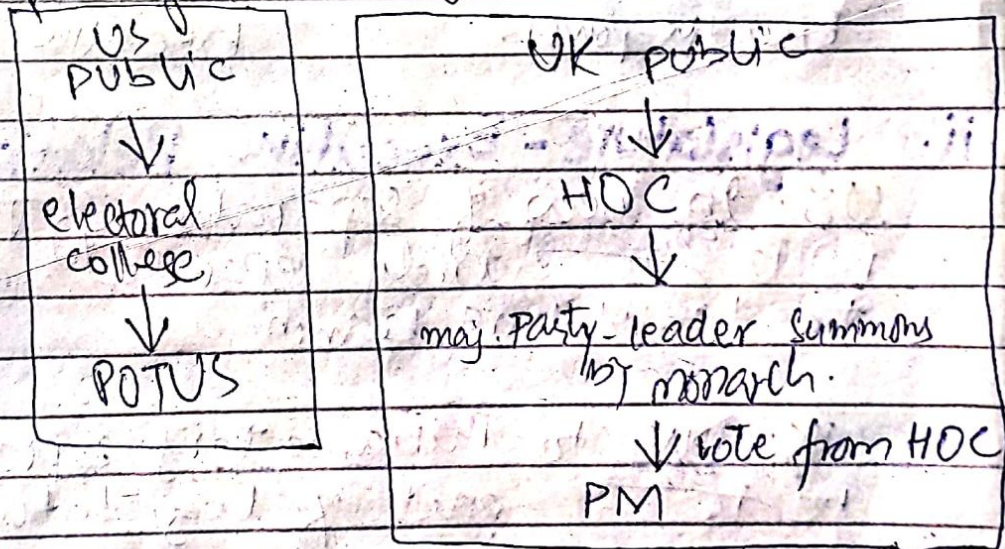 US
public
↓
electoral
college
↓
POTUS
UK public
↓
HOC
↓
maj. Party-leader summons
by monarch.
↓ vote from HOC
PM
ii. Legislature -